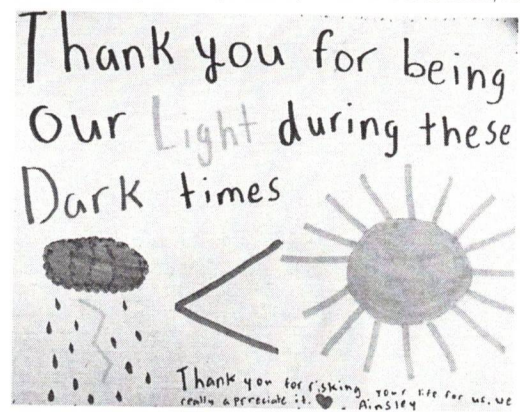 Thank you for being
our Light during these
Dark times
Thank you for risking your life for us. we
really appreciate it. ♥ Ainsley